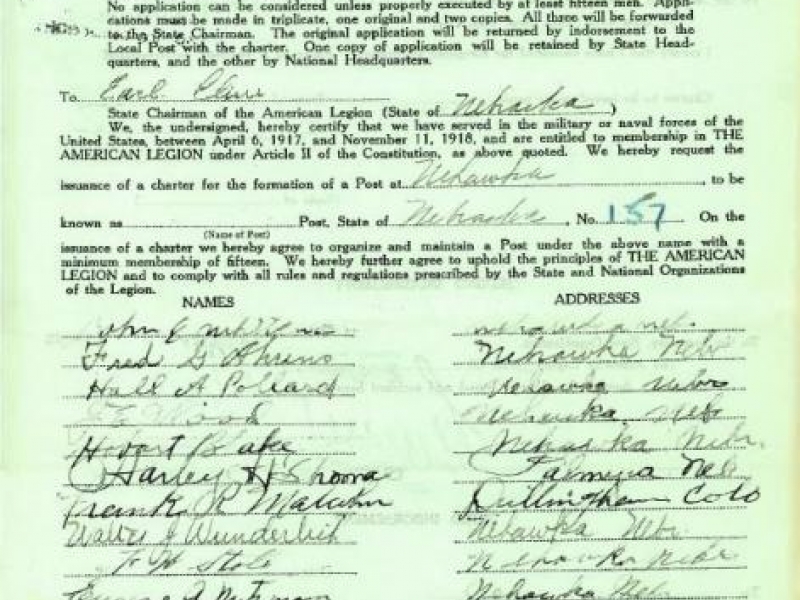 No application can be considered unless properly executed by at least fifteen men. Appli-
cations must be made in triplicate, one original and two copies. All three will be forwarded
to the State Chairman. The original application will be returned by indorsement to the
Local Post with the charter. One copy of application will be retained by State Head-
quarters, and the other by National Headquarters.
To Earl Cline
State Chairman of the American Legion (State of Nebraska)
We, the undersigned, hereby certify that we have served in the military or naval forces of the
United States, between April 6, 1917, and November 11, 1918, and are entitled to membership in THE
AMERICAN LEGION under Article II of the Constitution, as above quoted. We hereby request the
issuance of a charter for the formation of a Post at Nehawka, to be
known as Post, State of Nebraska, No. 157 On the
(Name of Post)
issuance of a charter we hereby agree to organize and maintain a Post under the above name with a
minimum membership of fifteen. We hereby further agree to uphold the principles of THE AMERICAN
LEGION and to comply with all rules and regulations prescribed by the State and National Organizations
of the Legion.
NAMES ADDRESSES
John Nehawka Neb.
Fred G Ahrens Nehawka Nebr
Hall A Pollard Nehawka Nebr
Wood Nehawka, Nebr
Hobart Nehawka Nebr.
Harley A Shoona Neb
Frank R Malcolm Colo
Walter J Wunderlich Nehawka Nebr.
Nehawka Nebr
A Nehawka Nebr